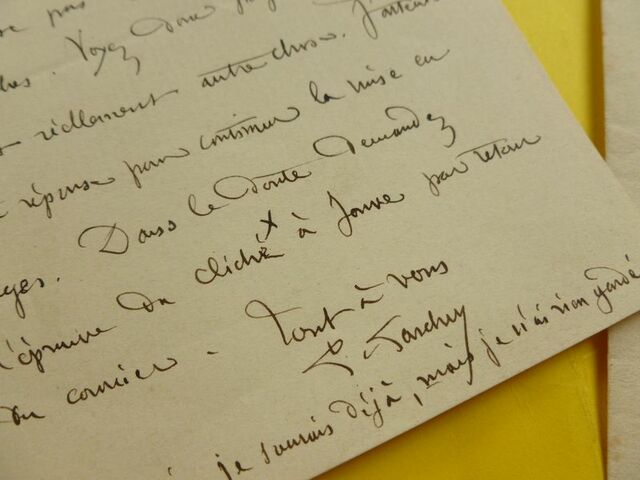 pas
Voyez donc
réellement autre chose. J'attends
réponse pour continuer la mise en
ges. Dans le doute demandez
l'épreuve du cliché x à Jouve par retour
du courrier - Tout à vous
je saurais déjà, mais je n'ai rien gardé